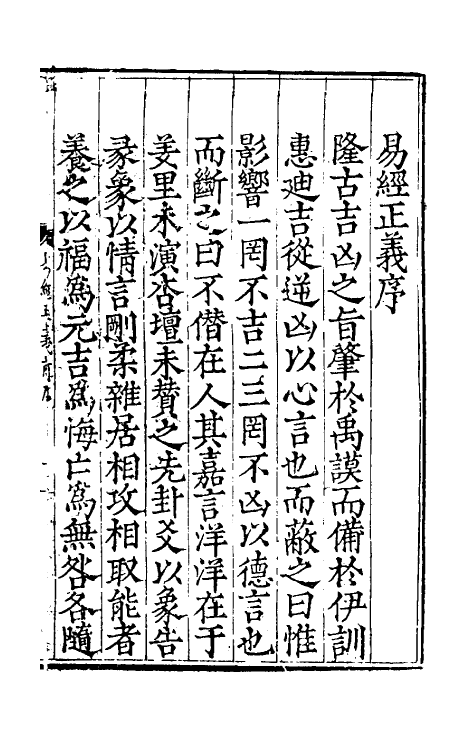 易經正義序
隆古吉凶之旨肇於禹謨而備於伊訓
惠迪吉從逆凶以心言也而蔽之曰惟
影響一罔不吉二三罔不凶以德言也
而斷之曰不僭在人其嘉言洋洋在于
羑里未演杏壇未贊之先卦爻以象告
彖象以情言剛柔雜居相攻相取能者
養之以福爲元吉爲悔亡爲無咎各隨